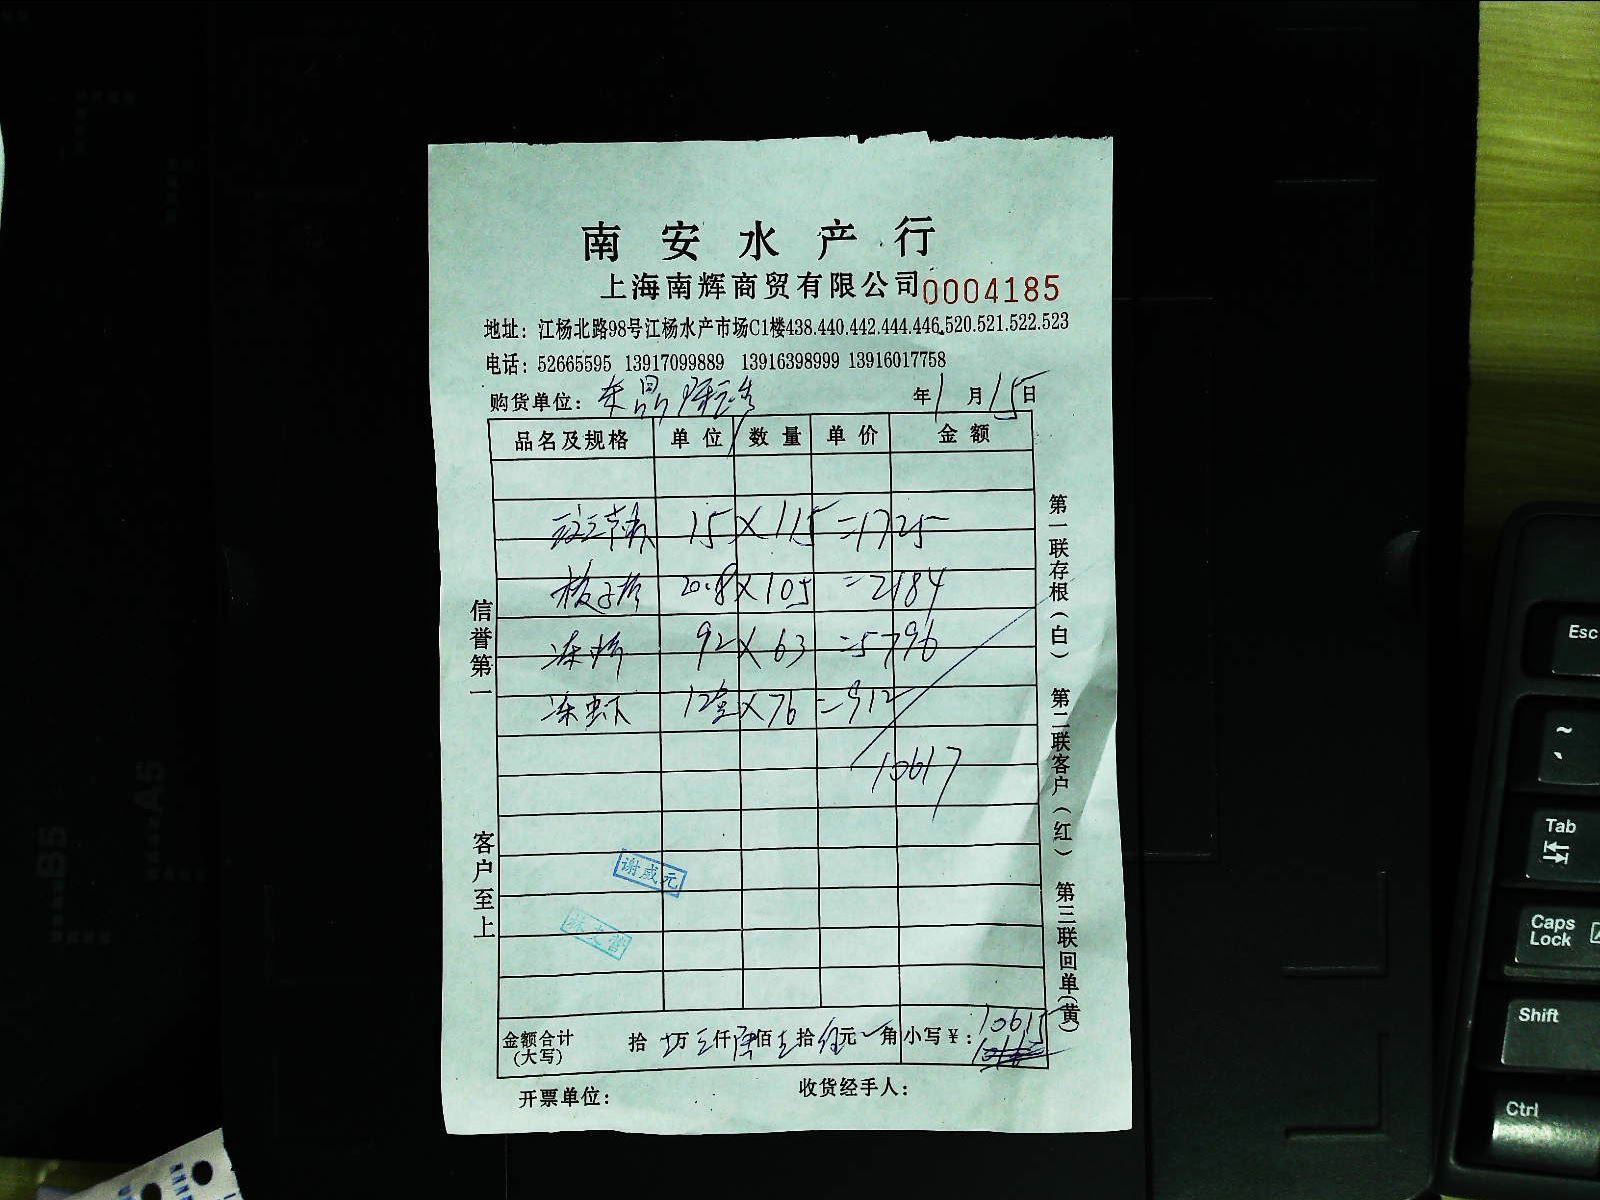 南安水产行
上海南辉商贸有限公司0004185
地址：江杨北路98号江杨水产市场C1楼438.440.442.444.446.520.521.522.523
电话：52665595 13917099889 13916398999 13916017758
购货单位： 年1月15日
品名及规格 单位 数量 单价 金额
15×115=1725
板子 20.8×105=2184
冻 92×63=5796
冻虾 12盒×76=912
10617
谢成元
信誉第一
客户至上
第一联存根（白） 第二联客户（红） 第三联回单（黄）
金额合计 拾 万 仟 佰 拾 元 角 小写￥：10615
（大写）
开票单位： 收货经手人：
B5
A5
Esc
~
Tab
Caps
Lock
A
Shift
Ctrl